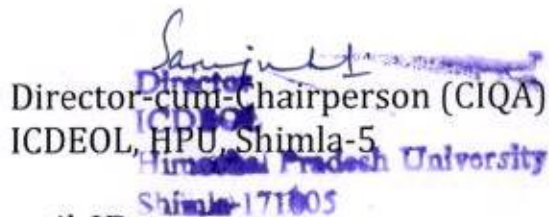 Director-cum-Chairperson (CIQA)
Director
ICDEOL, HPU, Shimla-5
ICDEOL
Himachal Pradesh University
Shimla-171005